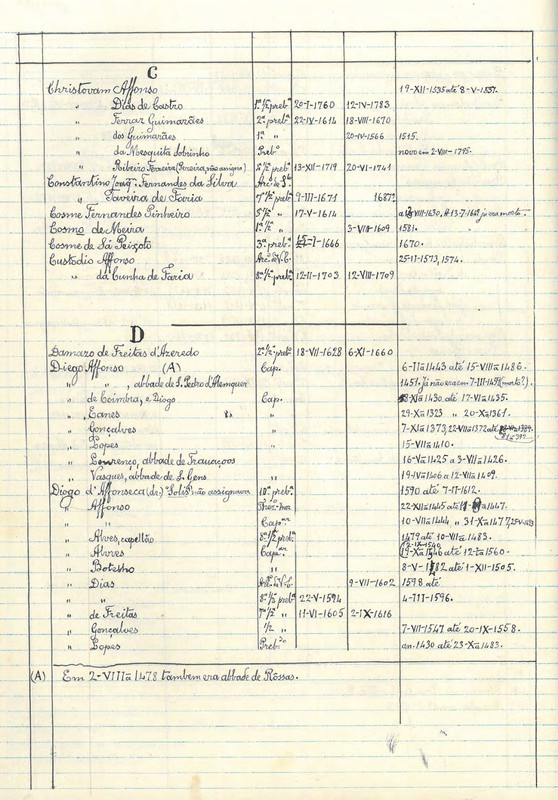 C
Christovam Affonso 19-XII-1535 até 8-V-1537.
" Dias de Castro 1ª ½ prebª 20-I-1760 12-IV-1783
" Ferraz Guimarães 2ª prebª 22-IV-1614 18-VIII-1670
" dos Guimarães 1ª " 20-IV-1566 1515.
" da Mesquita Sobrinho Prebº novo em 2-VIII-1795.
" Ribeiro Ferreira (Pereira, não assigna) 2ª ½ prebª 13-XII-1719 20-VI-1741
Constantino Joaqm Fernandes da Silva
" Saveira de Faria 7ª ½ prebª 9-III-1671 1687?
Cosme Fernandes Pinheiro 5ª ½ " 17-V-1614
Cosmo de Meira 1ª ½ " 3-VIII-1609 1581.
Cosme de Sá Peixoto 3ª prebª -I-1666 1670.
Custodio Affonso 25-II-1573, 1574.
" da Cunha de Faria 8ª ½ prebª 12-II-1703 12-VIII-1709
D
Damazo de Freitas d'Azeredo 2ª ½ prebª 18-VII-1628 6-XI-1660
Diego Affonso (A) Cap. 6-IIª 1443 até 15-VIIIª 1486.
" " , abbade de S. Pedro d'Alemquer 1451. Já não era em 7-III-
" de Coimbra, e Diogo Cap. -XIª 1430 até 17-VIª 1435.
" Eanes " 29-Xª 1323 " 20-Xª 1361.
" Gonçalves " 7-XIª 1373, 22-VIIª 1372 até
" Lopes " 15-VIIª 1410.
" Lourenço, abbade de Travaços 16-Vª 1425 a 3-VIIª 1426.
" Vasques, abbade de S. Gens " 19-IVª 1406 a 12-VIIª 1409.
Diogo d'Affonseca (de) "Solis" não assignava 10ª prebª 1590 até 7-II-1612.
" Affonso 22-XIIª 1445 até 1447.
" " 10-VIIª 1444 " 31-Xª 1447,
" Alves, capellão 8ª ½ prebª 1479 até 10-VIIª 1483.
" Alvres 12-IX-1540
19-Xª 1546 até 12-Iª 1560.
" Botelho " 8-V- até 1-XII-1505.
" Dias 9-VII-1602 1598 até
" " 8ª ½ prebª 22-V-1594 4-III-1596.
" de Freitas 7ª ½ " 11-VI-1605 2-IX-1616
" Gonçalves ½ " 7-VII-1547 até 20-IX-1558.
" Lopes Prebdo an. 1430 até 23-Xª 1483.
(A) Em 2-VIIIª 1478 tambem era abbade de Rossas.